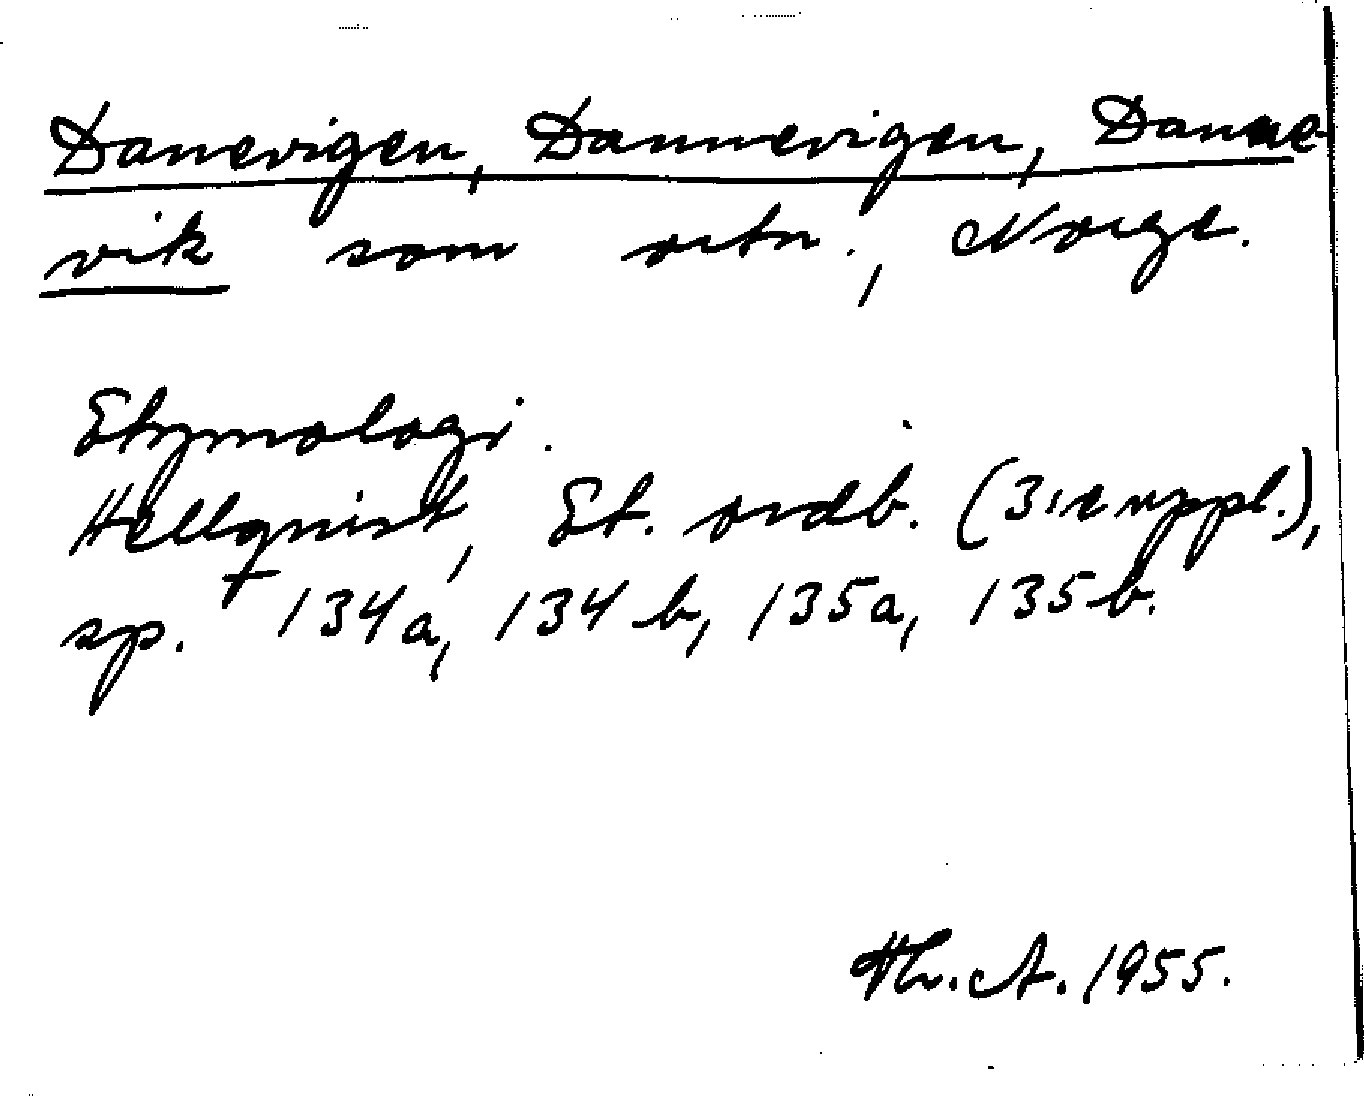 Danevigen, Dannevigen, Danne
vik som ortn., Norge.
Etymologi.
Hellquist, Et. ordb. (3:e uppl.),
sp. 134a, 134b, 135a, 135b.
Hr. A. 1955.